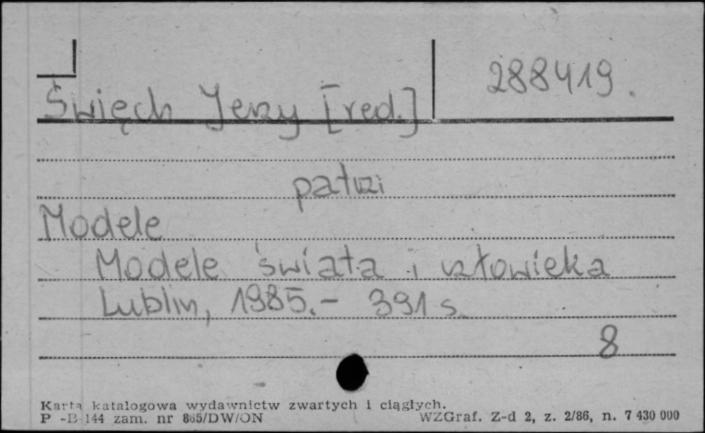 288419.
Święch Jerzy [red.]
patrzi
Modele
Modele świata i człowieka
Lublin, 1985.- 391 s.
8
Karta katalogowa wydawnictw zwartych i ciągłych.
P -B 144 zam. nr 865/DW/ON WZGraf. Z-d 2, z. 2/86, n. 7 430 000